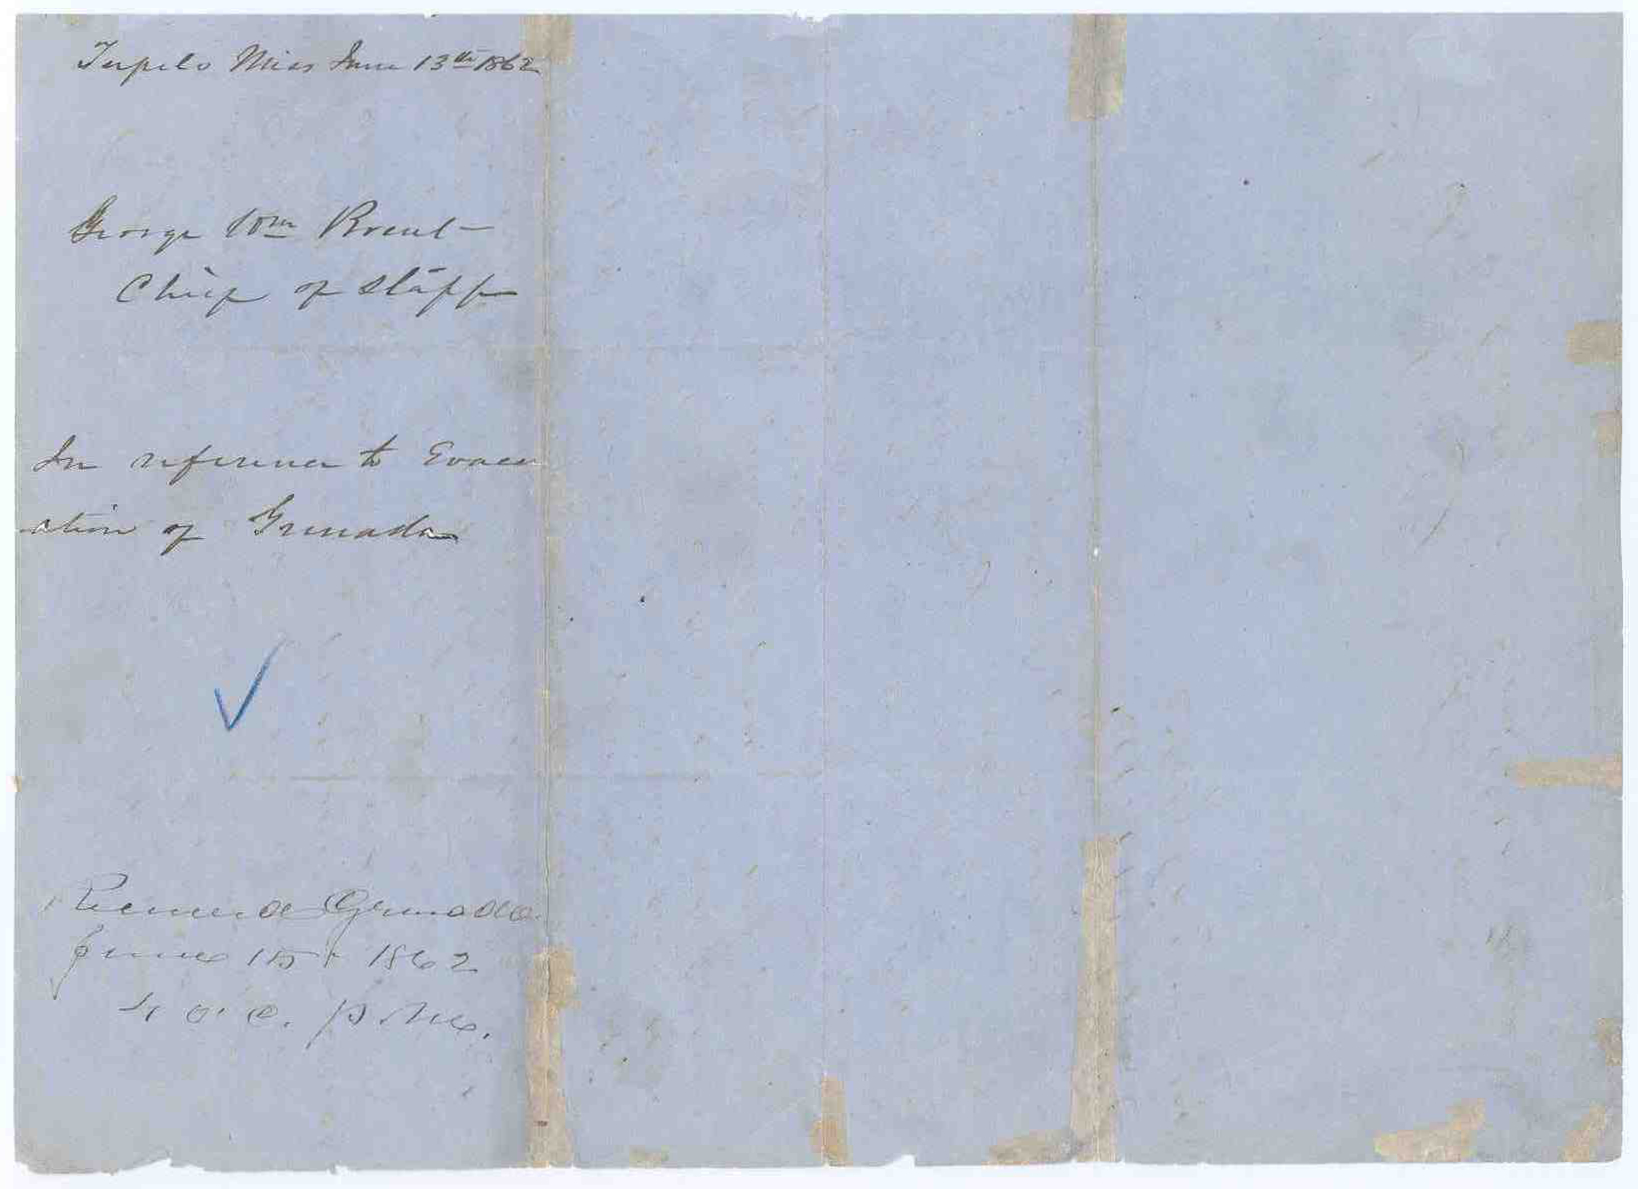 Tupelo Miss June 13th 1862
George Wm Brent
Chief of Staff
In reference to Evacu
ation of Grenada
Received Grenada
June 15t 1862
4 o. c. P. M.